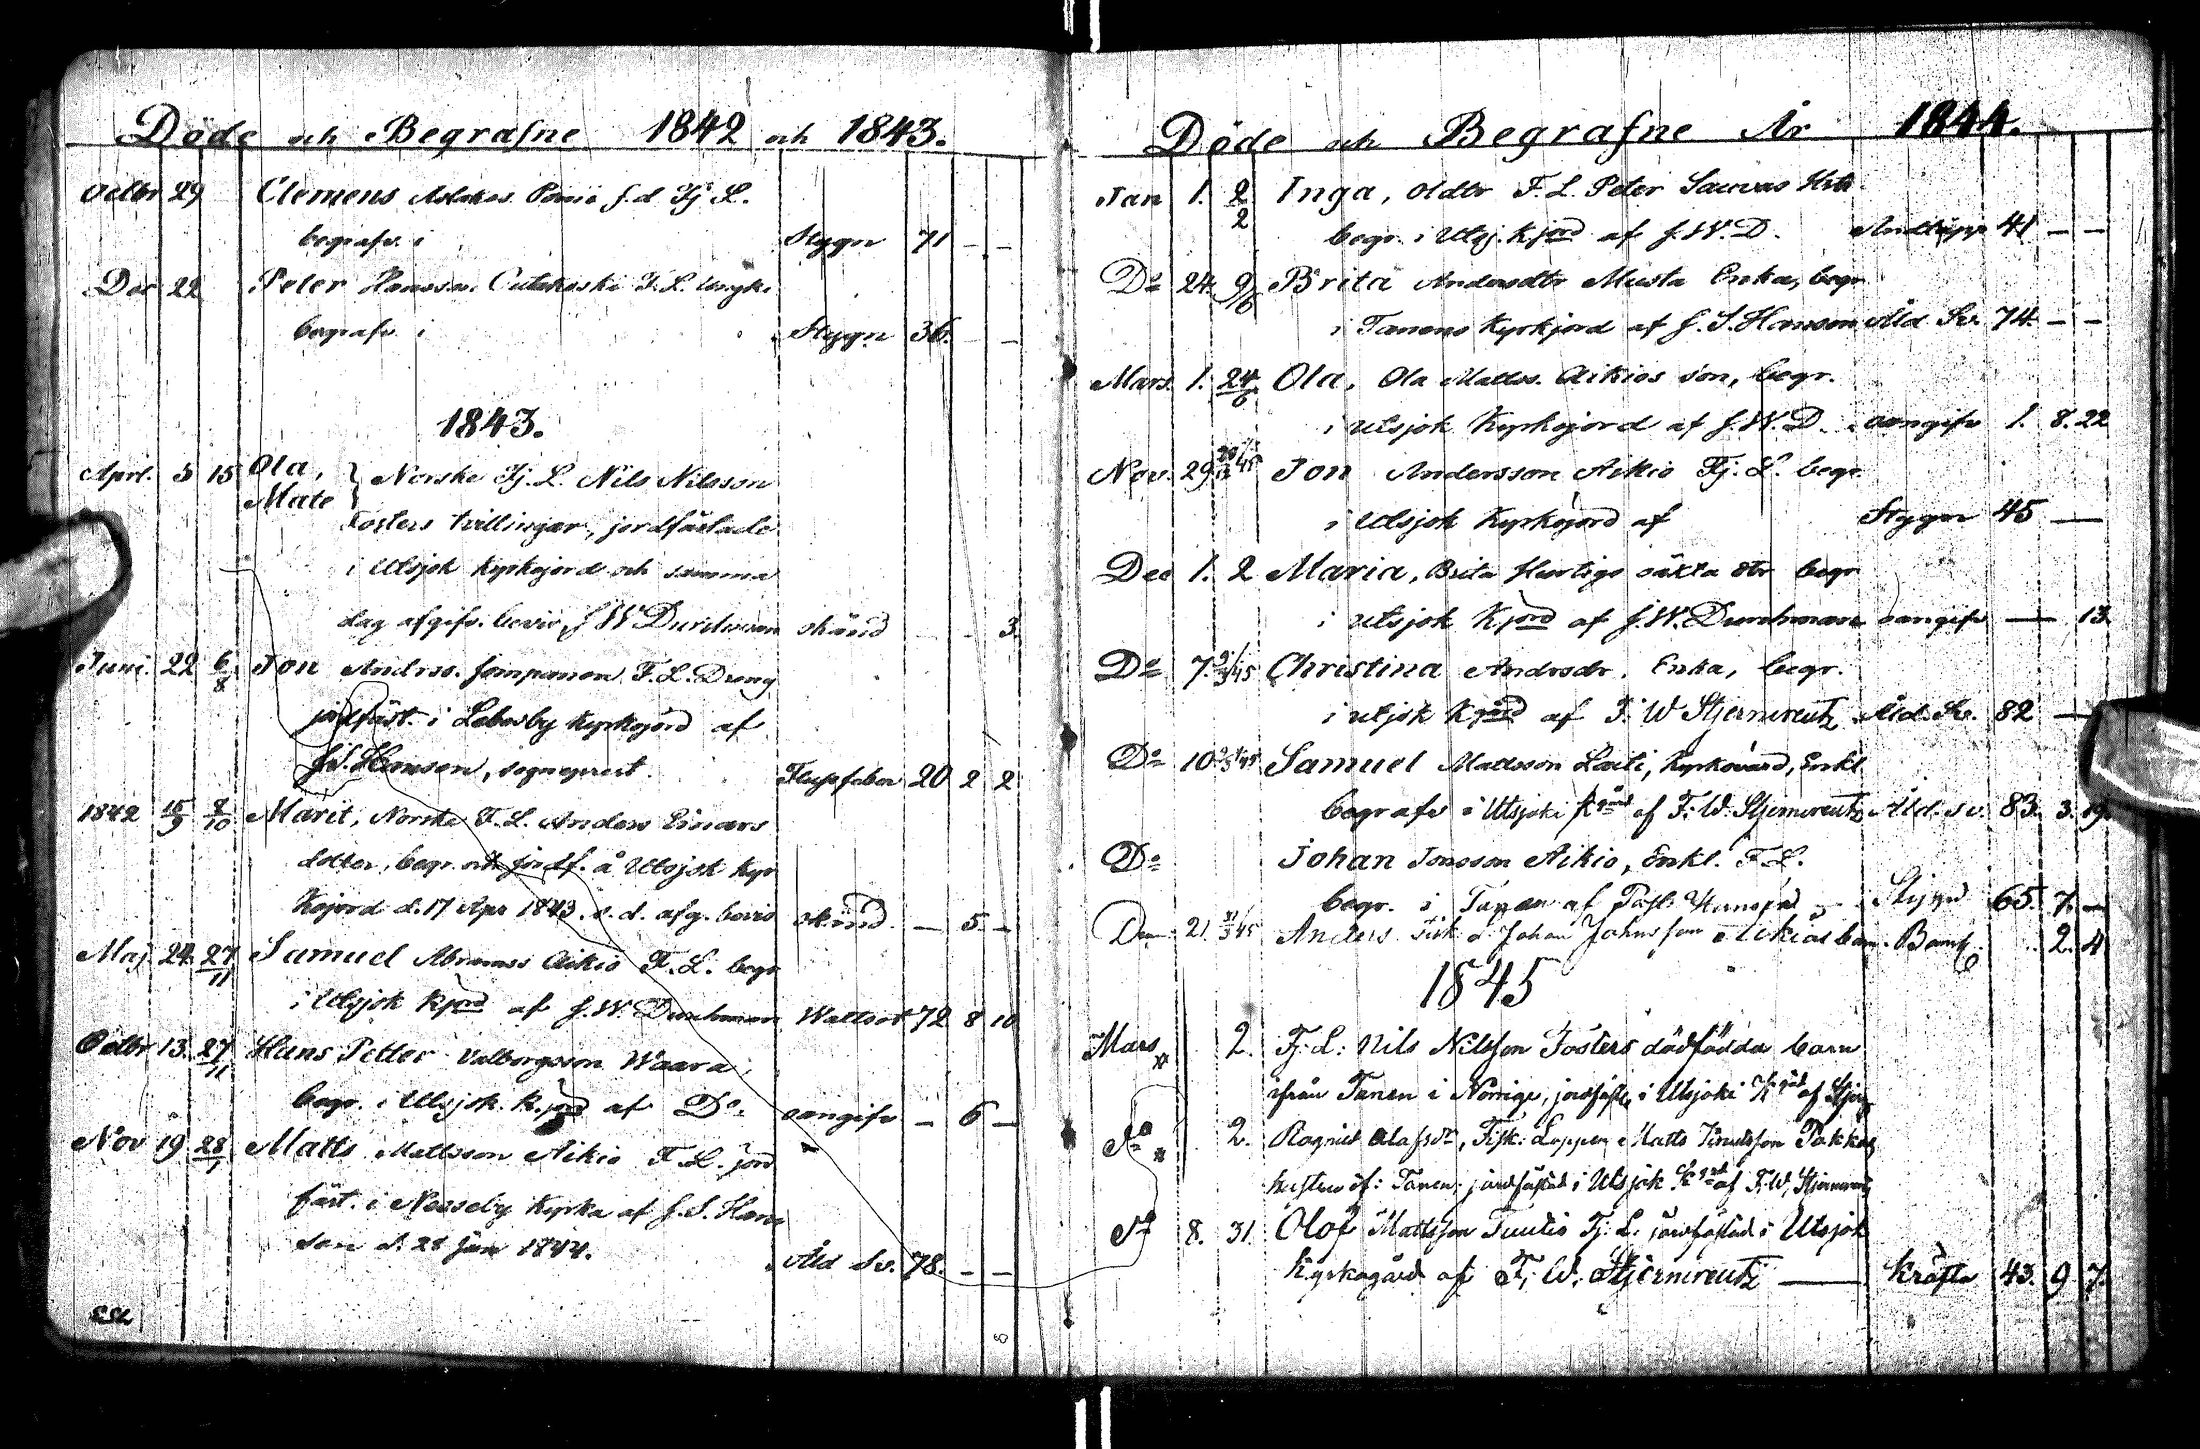 Döde och Begrafne 1842 och 1843.
Octbr 29 Clemens Aslakss. f.d. Fj. L.
begrafv. i Stygn 71 — —
Dec 22 Peter Hansson F. L. yngl.
begrafv. i Stygn 36. — —
1843.
Aprl. 5 15 Ola,
Mate } Norske Fj. L. Nils Nilsson
Fosters tvillingar, jordfästade
i Utsjok kyrkojord och samma
dag afgifv. bevis J W Durchman okänd — — 3
Juni. 22 6/8 Jon Andrss. F. L. Dreng
jordfäst. i Lebesby kyrkojord af
J. S. Hansen, sogneprest. 20 2 2
1842 15/9 8/10 Marit, Norske F. L. Anders Einars
dotter, begr. och jordf. å Utsjok kyr
kojord d. 17 Apr 1843. s. d. afg. bevis okänd. — 5 —
Maj 24. 27/11 Samuel Abramss Aikio F. L. begr
i Utsjok kjord af J. W. Durchman Wattsot 72 8 10
Octbr 13. 27/11 Hans Petter Valborgsson Waara,
begr. i Utsjok. k.jord af Do. oangifv — 6 —
Nov 19 28/1 Matts Mattsson Aikio F. L. jord
fäst. i Nesseby kyrka af J. S. Han
sen d. 28 Jan 1844. Åld Sv. 78. — —
Döde och Begrafne År 1844.
Jan 1. 2/2 Inga, F. L. Peter
begr. i Utsj. kjord af J. W. D. 41 — —
Do 24. Brita Andersdtr Musta Enka, begr
i Tanens kyrkjord af J. S. Hansen Åld Sv. 74. — —
Mars. 1. 24/6 Ola, Ola Mattss. Aikios son, begr.
i Utsjok kyrkojord af J. W. D. oangifv 1. 8. 22
Nov. 29 Jon Andersson Aikio Fj. L. begr.
i Utsjok kyrkojord af Stygn 45 —
Dec 1. 2 Maria, Brita oäkta dtr begr
i utsjok kjord af J. W. Durchman oangifv — 13
Do 7. Christina Andrsdr. Enka, begr.
i utsjok kjord af F. W Stjerncreutz Åld. Sv. 82 —
Do 10 Samuel Mattsson Laiti, kyrkovärd, Enkl
begrafv i Utsjoki kgård af F. W. Stjerncreutz Åld. sv. 83. 3. 19.
Do Johan Jonsson Aikio, Enkl. F. L.
begr. i Tanen af Past. Stygn 65. 7. —
21. Anders Fisk. L. Johan Johnsson Aikios barn. 2. 4
1845
Mars 2. Fj. L: Nils Nilsson Fosters dödfödda barn
ifrån Tanen i Norrige, jordfäst. i Utsjoki kgård af
Do 2. Ragnild Olafsdr, Fisk: Lappen Matts
hustru if: Tanen, jordfästad i Utsjok kgård af F. W. Stjerncreutz
Do 8. 31. Olof Mattsson Fj. L. jordfästad i Utsjok
kyrkogård af F. W. Stjerncreutz — kräfta 43. 9 7.